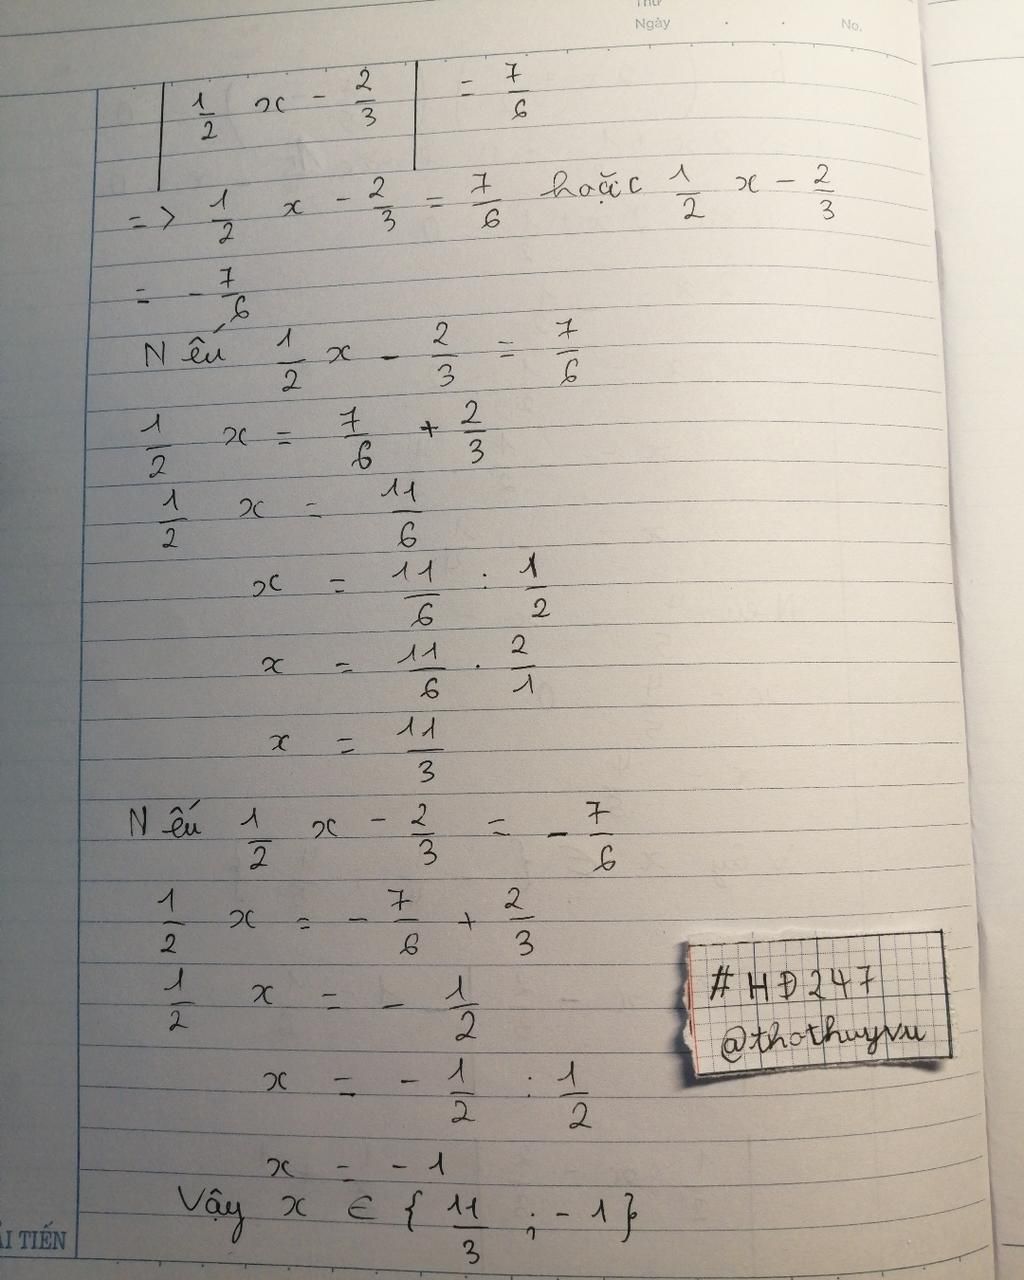 Thứ
Ngày . . No.
| 1/2 x - 2/3 | = 7/6
=> 1/2 x - 2/3 = 7/6 hoặc 1/2 x - 2/3
= - 7/6
Nếu 1/2 x - 2/3 = 7/6
1/2 x = 7/6 + 2/3
1/2 x = 11/6
x = 11/6 : 1/2
x = 11/6 . 2/1
x = 11/3
Nếu 1/2 x - 2/3 = - 7/6
1/2 x = - 7/6 + 2/3
1/2 x = - 1/2
x = - 1/2 : 1/2
x = - 1
Vậy x ∈ { 11/3 ; - 1 }
#HĐ247
@thothuyvu
ẢI TIẾN